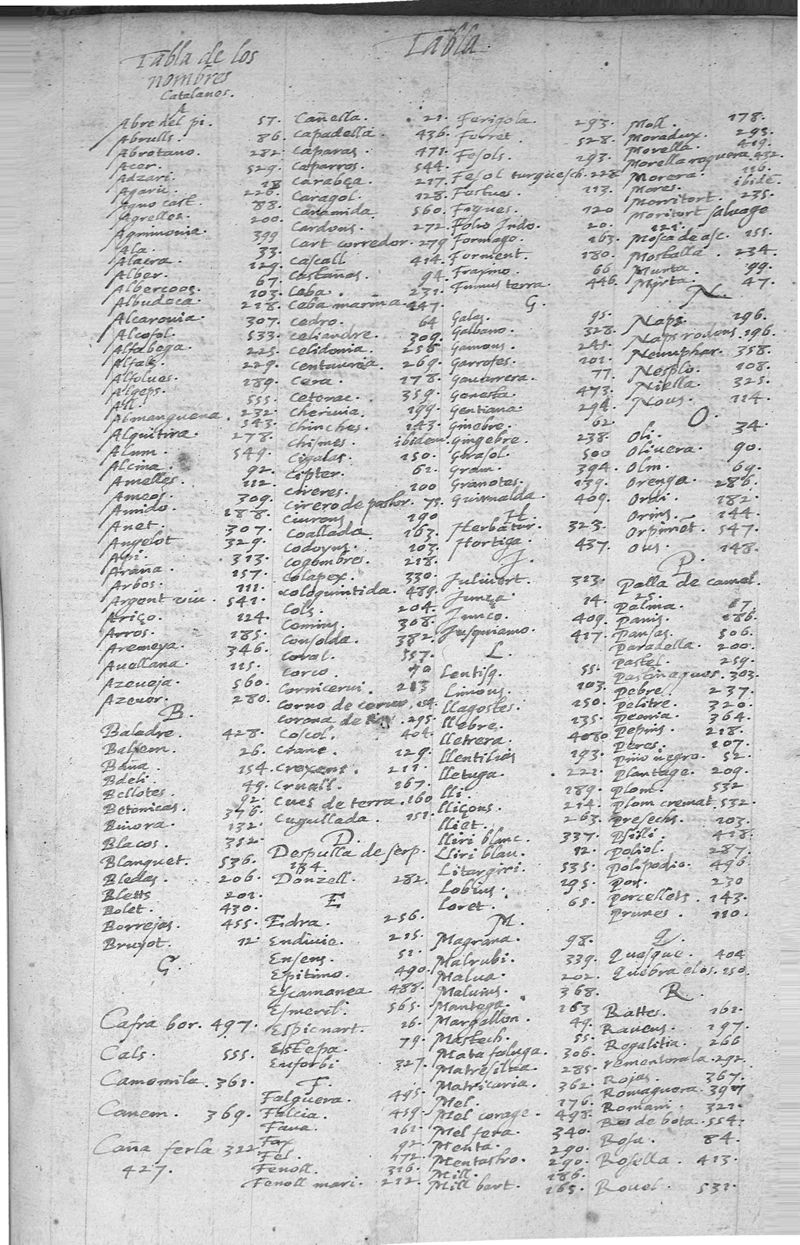 Tabla de los
nombres
Catalanos.
Tabla
A
Abre del pi. 57.
Abrulls. 86.
Abrotano. 282.
Acer. 529.
Adzari. 18
Agaric. 226.
Agno cast. 88.
Agrelles. 200.
Agrimonia. 399
Ala. 33.
Alacra. 129.
Alber. 67.
Albercocs. 103.
Albudeca. 218.
Alcarouia. 307.
Alcofol. 533.
Alfabega. 225.
Alfals. 229.
Alfolues. 189.
Algeps. 555.
All. 232.
Almanguena. 543.
Alquitira. 278.
Alum. 549.
Alcina. 92.
Amelles. 112.
Ameos. 309.
Amido. 188.
Anet. 307.
Angelot. 329.
Api. 313.
Araña. 157.
Arbos. 111.
Argent viu. 541.
Ariço. 124.
Arros. 185.
Aremeya. 346.
Auellana. 115.
Azeuaja. 560.
Azeuer. 280.
B.
Baladre. 428.
Balsem. 26.
Baua. 154.
Bdeli. 49.
Bellotes. 92.
Betonicas. 376.
Biuora. 132.
Blacos. 352.
Blanquet. 536.
Bledas. 206.
Bletts 201.
Bolet. 430.
Borrejas. 455.
Brusot. 12
C.
Cafra bor. 497.
Cals. 555.
Camomila. 361.
Canem. 369.
Caña ferla 322
427.
Cañella. 21.
Capadella. 436.
Caparas. 471.
Caparros. 544.
Carabça. 217.
Caragol. 128.
Caramida. 560.
Cardons. 272.
Cart corredor. 279
Cascall. 414.
Castañas. 94.
Ceba. 231.
Ceba marina. 247.
Cedro. 64
Celiandre. 309.
Celidonia. 256
Centaurea. 269.
Cera. 178.
Ceterac. 359.
Cheriuia. 199.
Chinches. 143.
Chismes. ibidem.
Cigalas. 150.
Cipter. 62.
Cireres. 100
Cirero de pastor. 73.
Ciurons. 190
Coallada. 163.
Codoyns. 103.
Cogombres. 218.
Colapex. 330.
Coloquintida. 489.
Cols. 204.
Comins. 308.
Consolda. 382.
Coral. 557.
Corco. 70
Cornicerui. 213
Corno de ceruo. 154.
Corona de Rey. 295.
Coscol. 404
Crane. 129.
Crexens. 211.
Cruall. 167.
Cucs de terra. 160
Cugullada. 151.
D.
Despulla de serp.
134.
Donzell. 282.
E
Edra. 256.
Endiuie. 215.
Ensens. 51.
Epitimo. 490.
Escamonea 488.
Esmeril. 565.
Espicnart. 16.
Estepa. 79.
Euforbi 327.
F.
Falguera. 495.
Falcia. 459.
Faua. 161.
Fax 92.
Fel. 172.
Fenoll. 316.
Fenoll mari. 212.
Ferigola 293.
Ferret. 528.
Fesols. 193.
Fesol turquesch. 228
Festucs. 113.
Figues. 120
Folio Indo. 20.
Formago. 163.
Forment. 180.
Fraxino. 66
Fumus terra. 446.
G.
Galas. 95.
Galbano. 328.
Gamons. 241.
Garrofes. 101.
Gauarrera. 77.
Genesta. 473.
Gentiana. 294.
Ginebre. 62.
Gingebre. 238.
Girasol. 500
Gram. 394.
Granotes. 139.
Guirnalda. 409.
H.
Herbatur. 323.
Hortiga. 437.
J.
Juliuert. 313.
Junça. 14.
Junco. 409.
Jusquiamo. 417.
L.
Lentisq. 55.
Limons. 103.
Llagostes. 150.
Llebre. 135.
Lletrera. 480
Llentilias 193.
Lletuga. 221.
Lli. 189.
Lliçons. 214.
Lliet. 263.
Lliri blanc. 337.
Lliri blau. 12.
Litargiri. 535.
Lobins. 195.
Loret. 65.
M.
Magrana. 98.
Malrubi. 339.
Malua. 202.
Maluius. 368.
Mantega. 163
Margallon. 49.
Mastech. 55.
Mata faluga. 306.
Matresilua. 285.
Matricaria. 362.
Mel. 176.
Mel corage. 498.
Mel fera. 340.
Menta. 290.
Mentastro. 290.
Mill. 186.
Mill bort. 165.
Moll. 178.
Moradux. 293.
Morella. 419.
Morella roquera. 432.
Morera. 116.
Mores. ibidē.
Morritort. 235.
Moritort saluage
121.
Mosca de ase. 155.
Mostalla. 234.
Murta. 99.
Mirta. 47.
N.
Naps. 196.
Naps rodons. 196.
Nenuphar. 358.
Nesplo. 108.
Niella. 325.
Nous. 114.
O.
Oli. 34.
Oliuera. 90.
Olm. 69.
Orenga. 286.
Ordi. 182.
Orins. 144.
Orpimēt. 547.
Ous. 148.
P.
Palla de camel.
25.
Palma. 17.
Panis. 186.
Pansas. 506.
Paradella. 200.
Pastel. 259.
Pastinagues. 303.
Pebre. 237.
Pelitre. 320.
Peonia. 364.
Pepins. 218.
Peres. 107.
Pino negro. 52.
Plantage. 209.
Plom. 532
Plom cremat. 532.
Presechs. 103.
Psilli. 418.
Poliol. 287.
Polipodio. 496
Por. 230
Porcellets. 143.
Prunes. 110.
Q.
Quesque. 404
Quebra elos. 150.
R.
Rattes. 162.
Rauens. 197.
Regalitia. 266
rementerola. 292.
Rojas. 367.
Romaguera. 397
Romani. 321.
Ros de bota. 554.
Rosa. 84.
Rosella. 413.
Rouel. 531.